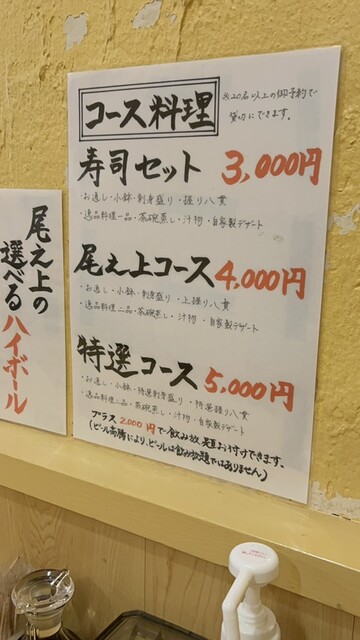 コース料理
※20名以上の御予約で
貸切にできます。
寿司セット 3,000円
・お通し・小鉢・刺身盛り・握り八貫
・逸品料理一品・茶碗蒸し・汁物・自家製デザート
尾之上コース 4,000円
・お通し・小鉢・刺身盛り・上握り八貫
・逸品料理二品・茶碗蒸し・汁物・自家製デザート
特選コース 5,000円
・お通し・小鉢・特選刺身盛り・特選握り八貫
・逸品料理二品・茶碗蒸し・汁物・自家製デザート
プラス2,000円で飲み放題お付けできます。
(ビール高騰により、ビールは飲み放題ではありません)
尾之上の
選べる
ハイボール